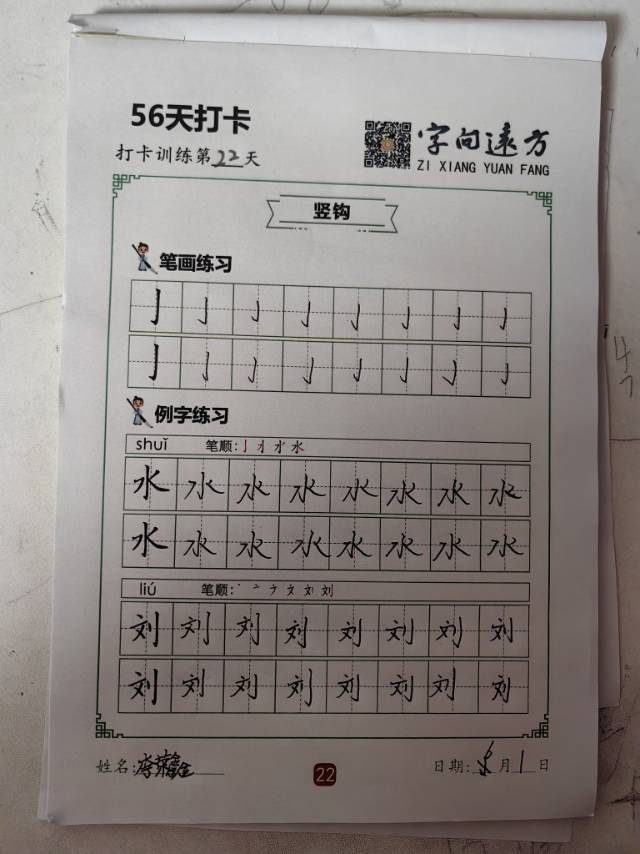 56天打卡
打卡训练第22天
字向遠方
ZI XIANG YUAN FANG
竖钩
笔画练习
亅亅亅亅亅亅亅亅
亅亅亅亅亅亅亅亅
例字练习
shuǐ 笔顺:
水水水水水水水水
水水水水水水水水
liú 笔顺:
刘刘刘刘刘刘刘刘
刘刘刘刘刘刘刘刘
姓名:
22
日期: 8月1日